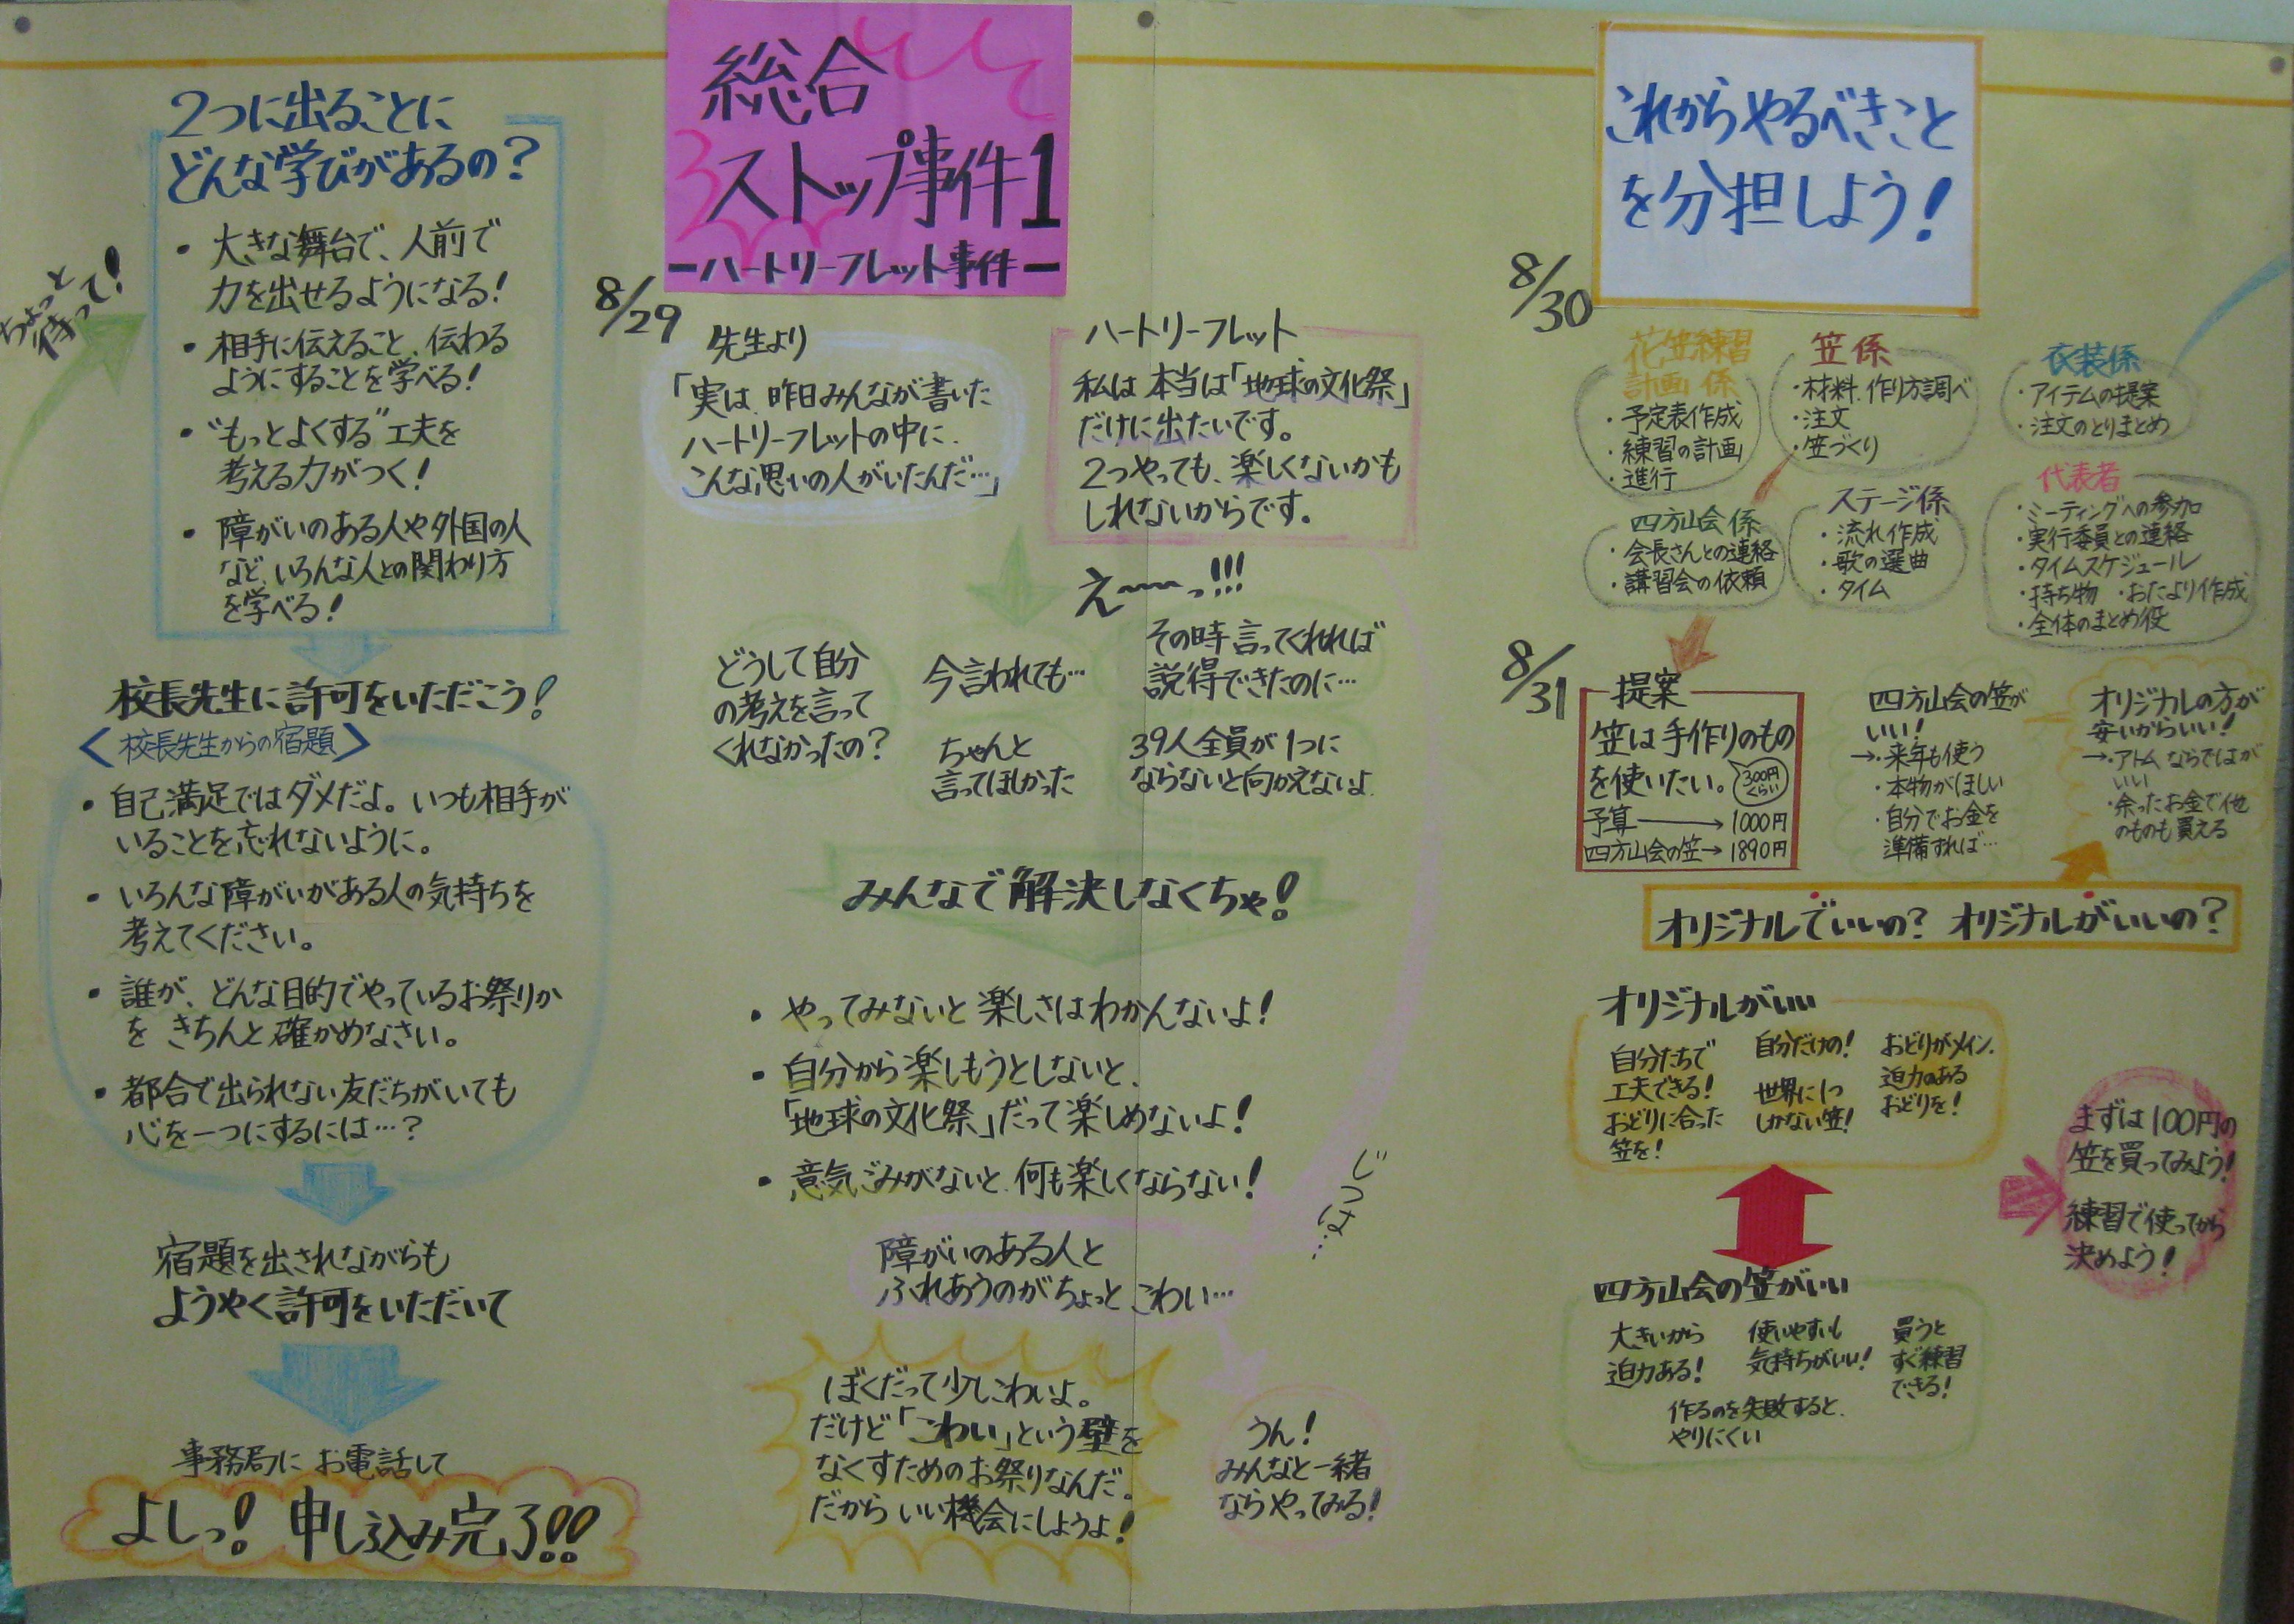 ちょっと
待って!
2つに出ることに
どんな学びがあるの?
・大きな舞台で、人前で
力を出せるようになる!
・相手に伝えること、伝わる
ようにすることを学べる!
・"もっとよくする"工夫を
考える力がつく!
・障がいのある人や外国の人
など、いろんな人との関わり方
を学べる!
校長先生に許可をいただこう!
<校長先生からの宿題>
・自己満足ではダメだよ。いつも相手が
いることを忘れないように。
・いろんな障がいがある人の気持ちを
考えてください。
・誰が、どんな目的でやっているお祭りか
を きちんと確かめなさい。
・都合で出られない友だちがいても
心を一つにするには…?
宿題を出されながらも
ようやく許可をいただいて
事務局に お電話して
よしっ! 申し込み完了!!
総合
ストップ事件1
ーハートリーフレット事件ー
8/29
先生より
「実は、昨日みんなが書いた
ハートリーフレットの中に、
こんな思いの人がいたんだ…」
ハートリーフレット
私は本当は「地球の文化祭」
だけに出たいです。
2つやっても、楽しくないかも
しれないからです。
え〜〜っ!!!
どうして自分
の考えを言って
くれなかったの?
今言われても…
ちゃんと
言ってほしかった
その時言ってくれれば
説得できたのに…
39人全員が1つに
ならないと向かえないよ.
みんなで解決しなくちゃ!
・やってみないと楽しさはわかんないよ!
・自分から楽しもうとしないと、
「地球の文化祭」だって楽しめないよ!
・意気ごみがないと、何も楽しくならない!
じつは…
障がいのある人と
ふれあうのがちょっと こわい…
ぼくだって少しこわいよ。
だけど「こわい」という壁を
なくすためのお祭りなんだ。
だから いい機会にしようよ!
うん!
みんなと一緒
ならやってみる!
これからやるべきこと
を分担しよう!
8/30
花笠練習
計画係
・予定表作成
・練習の計画
・進行
笠係
・材料、作り方調べ
・注文
・笠づくり
衣装係
・アイテムの提案
・注文のとりまとめ
四方山会係
・会長さんとの連絡
・講習会の依頼
ステージ係
・流れ作成
・歌の選曲
・タイム
代表者
・ミーティングへの参加
・実行委員との連絡
・タイムスケジュール
・持ち物 ・おたより作成
・全体のまとめ役
8/31
提案
笠は手作りのもの
を使いたい。
300円
くらい
予算→1000円
四方山会の笠→1890円
四方山会の笠が
いい!
→・来年も使う
・本物がほしい
・自分でお金を
準備すれば…
オリジナルの方が
安いからいい!
→・アトムならではが
いい
・余ったお金で他
のものも買える
オリジナルでいいの? オリジナルがいいの?
オリジナルがいい
自分たちで
工夫できる!
おどりに合った
笠を!
自分だけの!
世界に1つ
しかない笠!
おどりがメイン.
迫力のある
おどりを!
四方山会の笠がいい
大きいから
迫力ある!
使いやすいも
気持ちがいい!
買うと
すぐ練習
できる!
作るのを失敗すると、
やりにくい
まずは100円の
笠を買ってみよう!
練習で使ってから
決めよう!